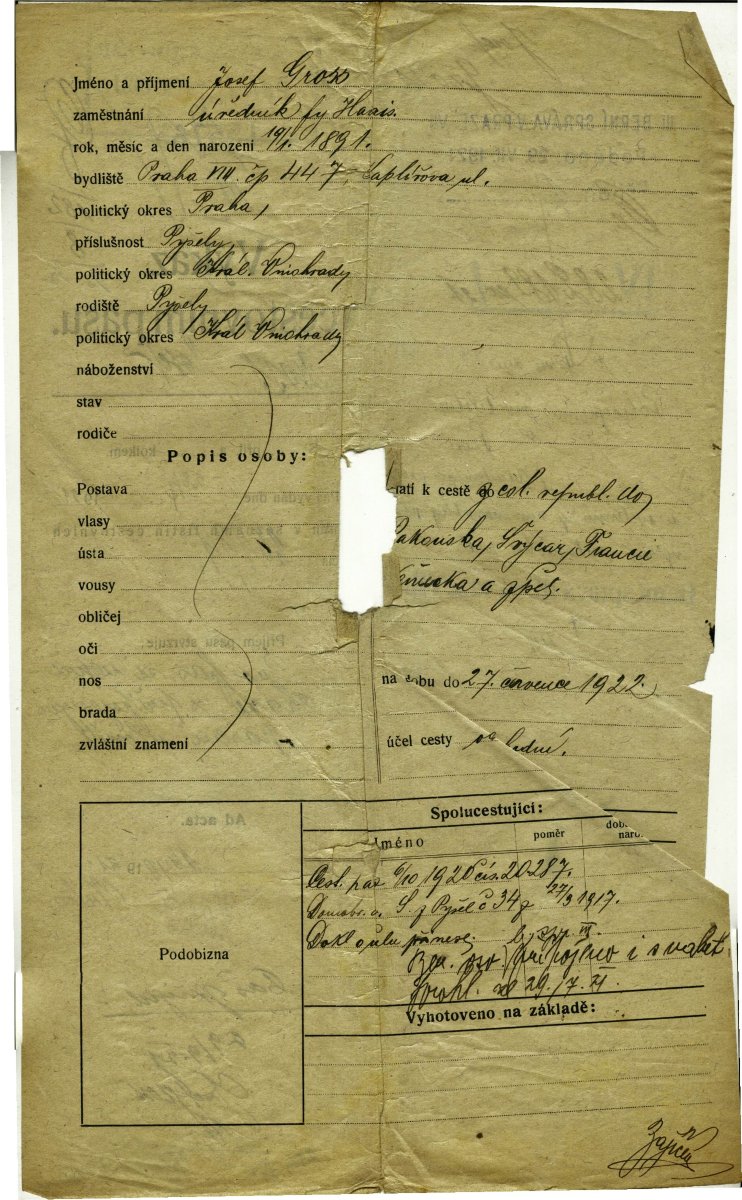 Jméno a příjmení Josef Gross
zaměstnání úředník fy Haais.
rok, měsíc a den narození 19/1. 1891.
bydliště Praha VIII. čp 447, Šaplířova ul.
politický okres Praha,
příslušnost Pyšely,
politický okres Král. Vinohrady
rodiště Pyšely
politický okres Král Vinohrady
náboženství
stav
rodiče
Popis osoby:
Postava
vlasy
ústa
vousy
obličej
oči
nos
brada
zvláštní znamení
latí k cestě do z čsl. republ. do
Rakouska, Švýcar, Francie
Německa a zpět.
na dobu do 27. července 1922.
účel cesty
Podobizna
Spolucestující:
Jméno poměr
Cest. pas 6/10 1920 čís. 20.287.
Domobr. v. S. z Pyšel č 34 z 27/3 1917.
připojeno i s
29./7. 21.
Vyhotoveno na základě: